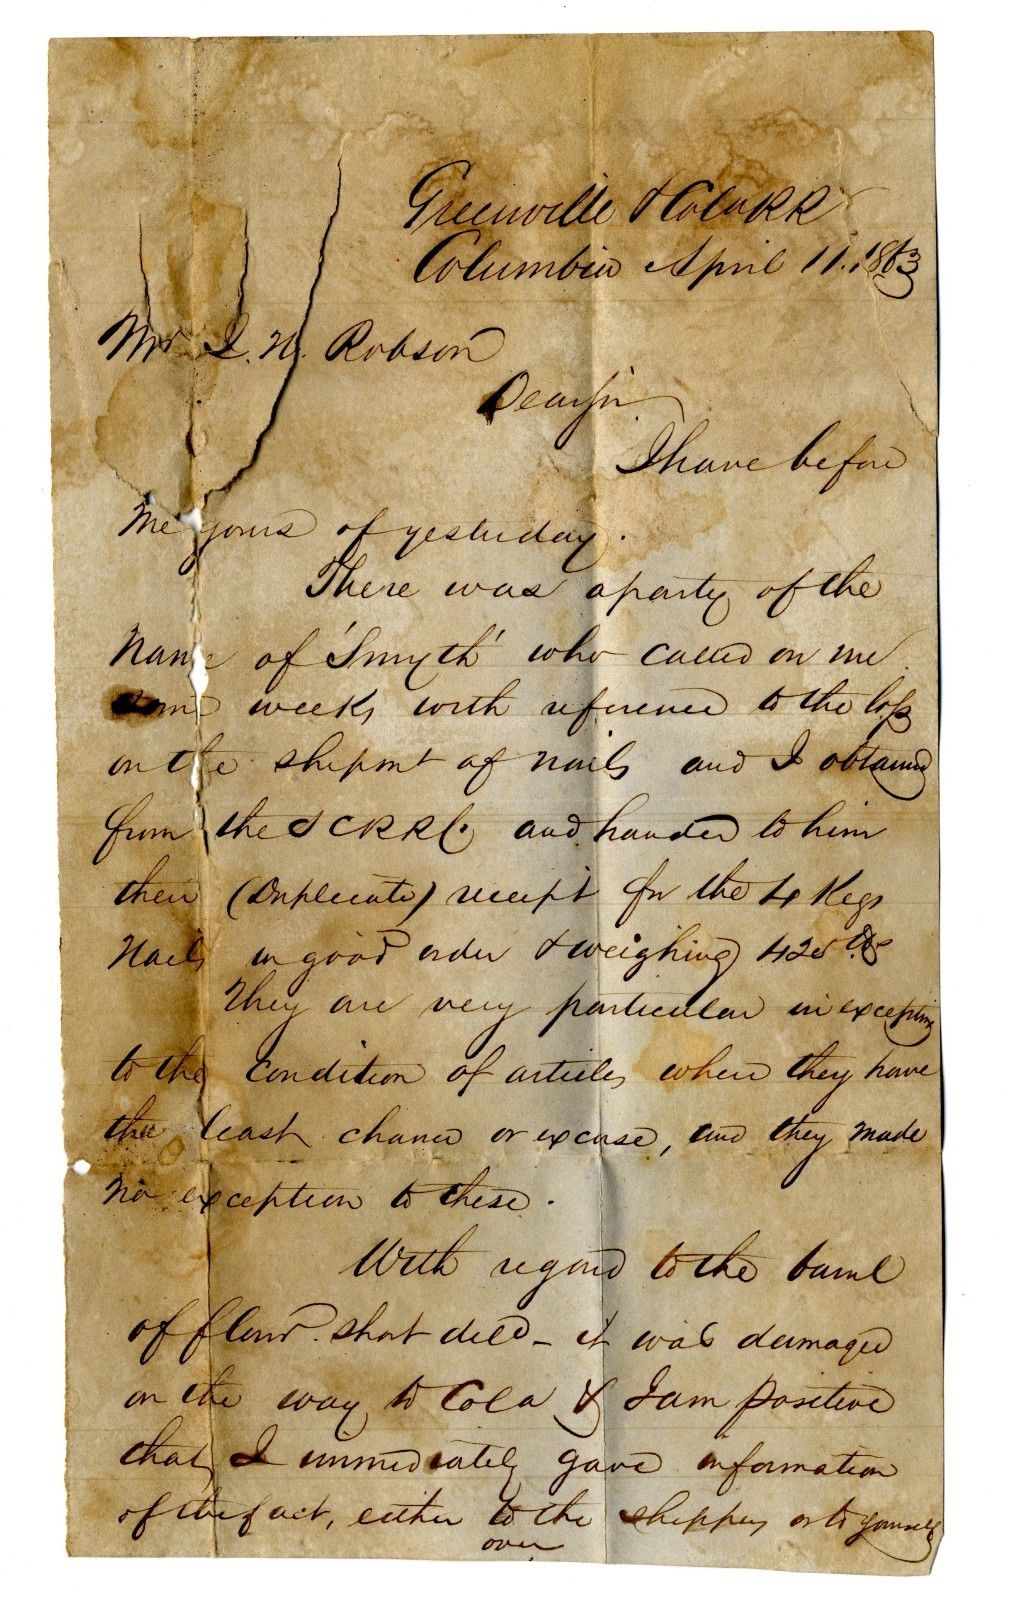 Greenville & Cola RR
Columbia April 11. 1863
Mr J. N. Robson
Dear Sir
I have before
me yours of yesterday.
There was a party of the
name of 'Smyth' who called on me
some weeks with reference to the loss
on the shipmt of nails and I obtained
from the S C RR Co. and handed to him
their (Duplicate) receipt for the 4 Kegs
Nails in good order & weighing 420 lbs
They are very particular in excepting
to the condition of articles where they have
the least chance or excuse, and they made
no exception to these.
With regard to the barrel
of flour short deld - it was damaged
on the way to Cola & I am positive
that I immediately gave information
of the fact, either to the shipper or to yourself
over